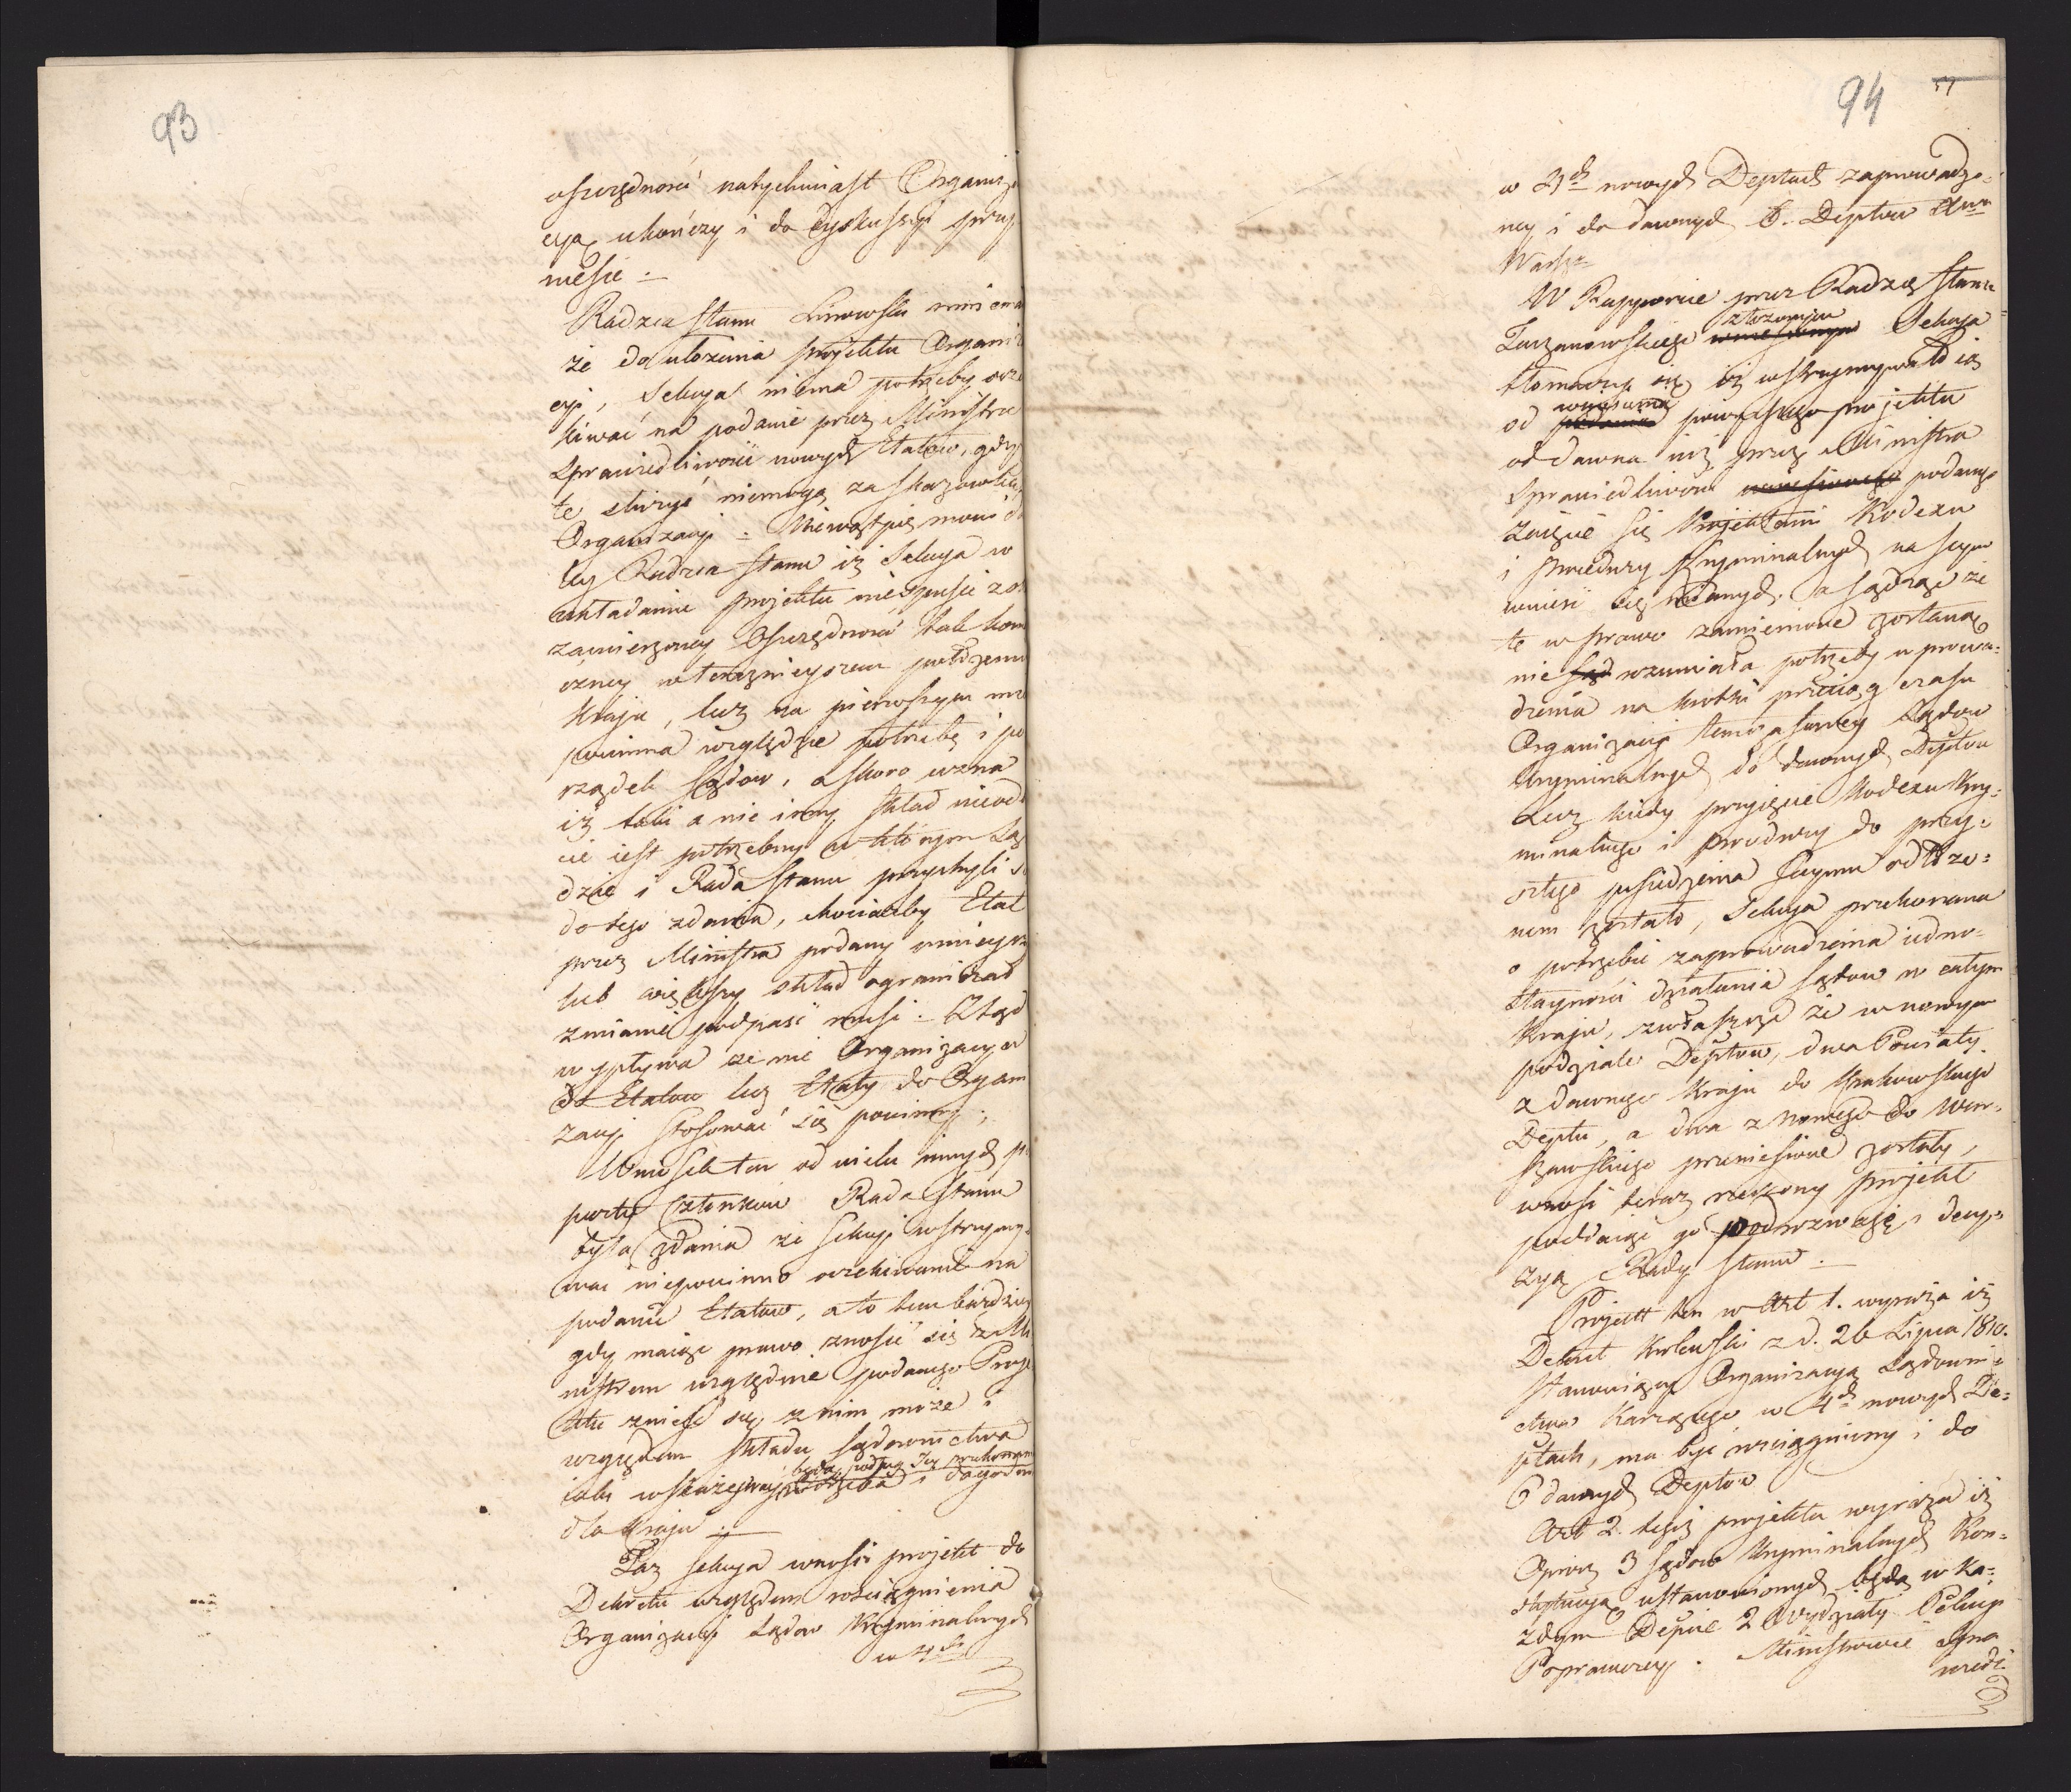 93
oszczędność natychmiast Organiz
cyą ukończy i do dyskussyi przy
niesie.
Radzca Stanu Linowski mniema
że do ułożenia projektu Organi
cyi, Sekcya niema potrzeby ocze
kiwać na podanie przez Ministra
Sprawiedliwości nowych Etatów, gdyż
te służyć niemogą za skazówkę
Organizacyi. Niewątpię mówi da
ley Radzca Stanu iż Sekcya w
układaniu projektu nie spuści z o
zamierzoney Oszczędności tak kon
czney w teraznieyszem położeniu
Kraju, lecz na pierwszym
powinna względzie potrzebę i po
rządek Sądów, a skoro uzna
iż taki a nie inny skład
cie iest potrzebny w którym Są
dzie i Rada Stanu przychyli się
do tego zdania, chociażby Etat
przez Ministra podany mnieyszy
lub większy skład ograniczał
zmianie podpaść musi. Ztąd
wypływa że nie Organizacya
do Etatów lecz Etaty do Organi
zacyi stosować się powinny.
Wniosek ten od wielu innych po
party Członków Rada Stanu
była zdania że Sekcyi wstrzymy-
wać niepowinno oczekiwanie na
podanie Etatów, a to tem bardziey
gdy maiąc prawo znosić się z Mi
nistrem względnie podanego Proje
ktu znieść się z nim może i
względem składu sądownictwa
będą podług Jey przekonania
iaki wskażą potrzeba i dogodn
dla Kraju.
Taż Sekcya wnosi projekt do
Dekretu względem rozciągnienia
Organizacyi Sądów Kryminalnych
w 4ch
94
w 4ch nowych Deptach zaprowadzo-
ney i do dawnych 6. Deptów Xwa
Warsz=
W Rapporcie przez Radzcę Stanu
złożonym
Sekcya
tłomaczy się iż wstrzymywało ią
od wniesienia powyższego projektu
oddawna iuż przez Ministra
Sprawiedliwości podanego
zaięcie się Projektami Kodexu
i Procedury Kryminalnych na Seym
wnieść się maiących, a sądząc że
te w prawo zamienione zostaną
nie rozumiała potrzeby wprowa-
dzenia na krótki przeciąg czasu
Organizacyi temczasowey Sądów
Kryminalnych do dawnych Deptów
Lecz kiedy przyięcie Kodexu Kry-
minalnego i Procedury do przy-
szłego posiedzenia Seymu odłożo-
nem zostało, Sekcya przekonana
o potrzebie zaprowadzenia iedno-
stayności działania Sądów w całym
Kraju, zwłaszcza że w nowym
podziale Deptów, dwa Powiaty
z dawnego Kraju do Krakowskiego
Deptu, a dwa z nowego do War-
szawskiego przeniesione zostały,
wnosi teraz rzeczony projekt
poddaiąc go pod rozwagę i decy-
zyą Rady Stanu.
Projekt ten w Art. 1. wyraża iż
Dekret Królewski z d. 26 Lipca 1810.
stanowiący Organizacyą Sądowni-
ctwa Karzącego w 4ch nowych De-
ptach, ma być rozciągniony i do
6 dawnych Deptów
Art 2. tegoż projektu wyraża iż
Oprócz 3 Sądów Kryminalnych Kon-
stytucyą ustanowionych będą w Ka-
żdym Depcie 2 Wydziały Policyi
Poprawczey. Ministrowie